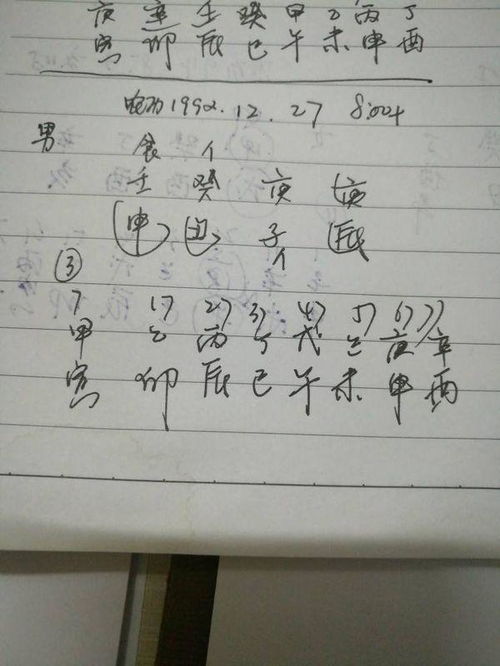 庚 辛 壬 癸 甲 乙 丙 丁
寅 卯 辰 巳 午 未 申 酉
1992.12.27 8:00
男
食 个
壬 癸 庚 庚
(申) (丑) 子 (辰
个
③
7 17 27 37 47 57 67 77
甲 乙 丙 丁 戊 己 庚 辛
寅 卯 辰 巳 午 未 申 酉